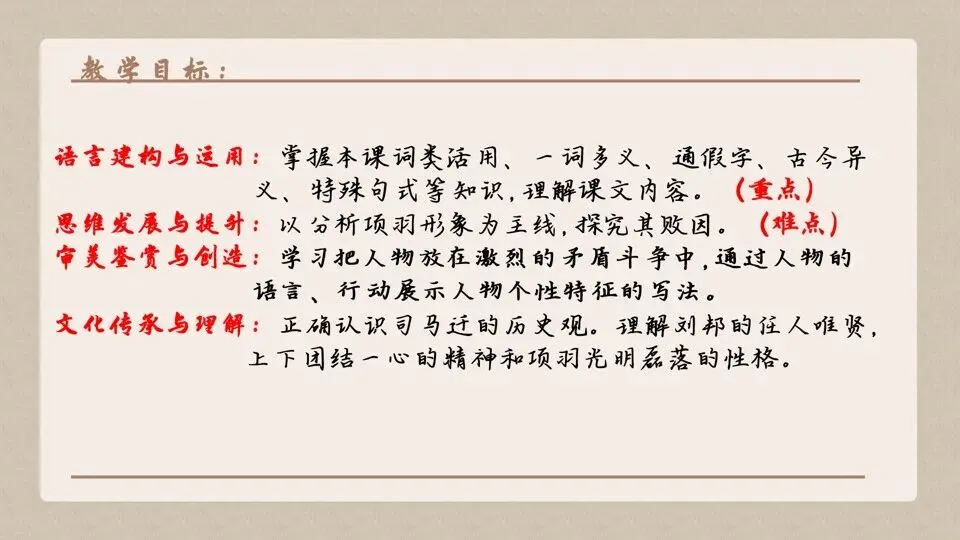 教学目标：
语言建构与运用：掌握本课词类活用、一词多义、通假字、古今异
义、特殊句式等知识,理解课文内容。（重点）
思维发展与提升：以分析项羽形象为主线,探究其败因。（难点）
审美鉴赏与创造：学习把人物放在激烈的矛盾斗争中,通过人物的
语言、行动展示人物个性特征的写法。
文化传承与理解：正确认识司马迁的历史观。理解刘邦的任人唯贤,
上下团结一心的精神和项羽光明磊落的性格。